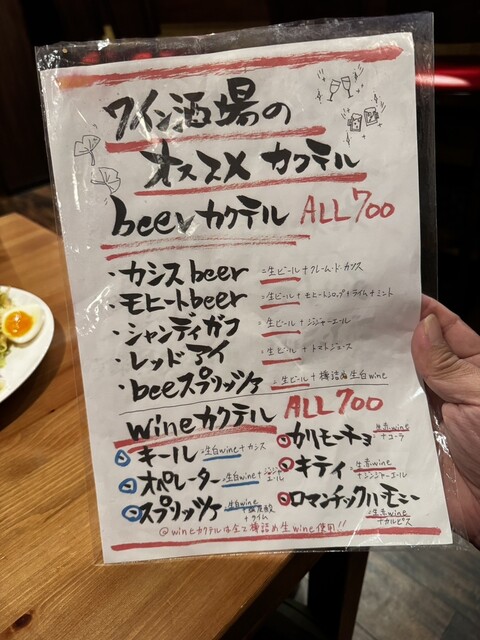 ワイン酒場の
オススメ カクテル
beerカクテル ALL 700
・カシスbeer =生ビール+クレーム・ド・カシス
・モヒートbeer =生ビール+モヒートシロップ+ライム+ミント
・シャンディガフ =生ビール+ジンジャーエール
・レッドアイ =生ビール+トマトジュース
・beeスプリッツァ =生ビール+樽詰め生白wine
wineカクテル ALL 700
キール =生白wine+カシス
オペレーター =生白wine+ジンジャーエール
スプリッツァ =生白wine+炭酸+ライム
カリモーチョ =生赤wine+コーラ
キティ =生赤wine+ジンジャーエール
ロマンチックハーモニー =生赤wine+カルピス
@wineカクテルは全て樽詰め生wine使用!!